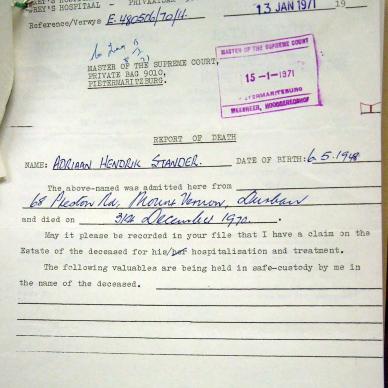 REY'S HOSPITAAL - PRIVAATSAK
13 JAN 1971 19
Reference/Verwys E.480506/70/11.
MASTER OF THE SUPREME COURT,
PRIVATE BAG 9010,
PIETERMARITZBURG.
MASTER OF THE SUPREME COURT
15-1-1971
PIETERMARITZBURG
MEESTER, HOOGGEREGSHOF
REPORT OF DEATH
NAME: ADRIAAN HENDRIK STANDER. DATE OF BIRTH: 6.5.1948
The above-named was admitted here from
68 Rd, Mount Vernon, Durban
and died on 31st December 1970.
May it please be recorded in your file that I have a claim on the
Estate of the deceased for his/her hospitalisation and treatment.
The following valuables are being held in safe-custody by me in
the name of the deceased.